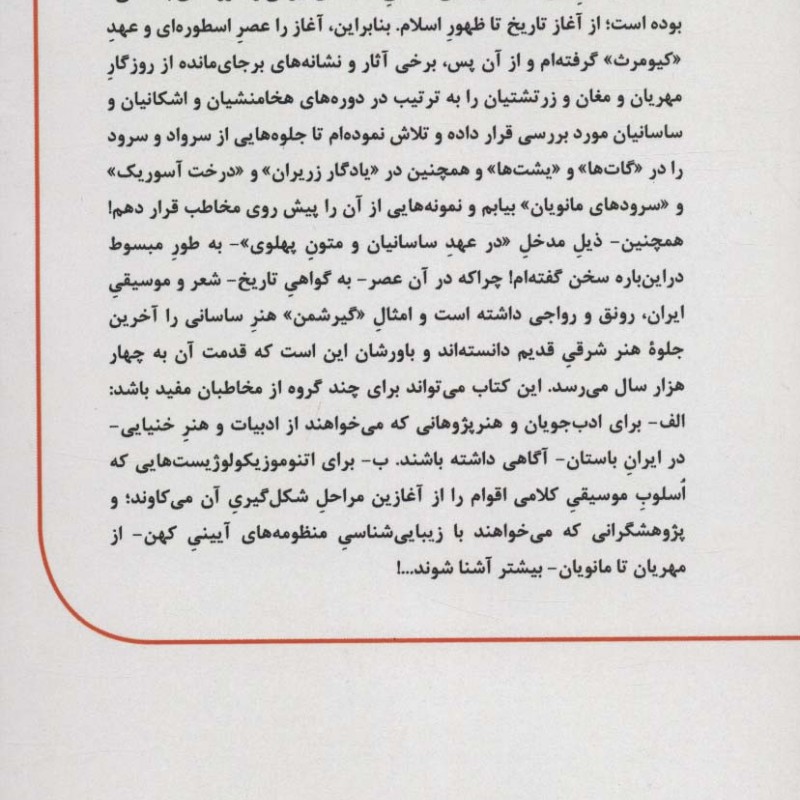 بوده است؛ از آغاز تاریخ تا ظهورِ اسلام. بنابراین، آغاز را عصرِ اسطوره‌ای و عهدِ
«کیومرث» گرفته‌ام و از آن پس، برخی آثار و نشانه‌های برجای‌مانده از روزگارِ
مهریان و مغان و زرتشتیان را به ترتیب در دوره‌های هخامنشیان و اشکانیان و
ساسانیان مورد بررسی قرار داده و تلاش نموده‌ام تا جلوه‌هایی از سرواد و سرود
را در «گات‌ها» و «یشت‌ها» و همچنین در «یادگار زریران» و «درخت آسوریک»
و «سرودهای مانویان» بیابم و نمونه‌هایی از آن را پیش روی مخاطب قرار دهم!
همچنین- ذیلِ مدخلِ «در عهدِ ساسانیان و متونِ پهلوی»- به طورِ مبسوط
دراین‌باره سخن گفته‌ام! چراکه در آن عصر- به گواهیِ تاریخ- شعر و موسیقیِ
ایران، رونق و رواجی داشته است و امثالِ «گیرشمن» هنرِ ساسانی را آخرین
جلوهٔ هنر شرقیِ قدیم دانسته‌اند و باورشان این است که قدمت آن به چهار
هزار سال می‌رسد. این کتاب می‌تواند برای چند گروه از مخاطبان مفید باشد:
الف- برای ادب‌جویان و هنرپژوهانی که می‌خواهند از ادبیات و هنرِ خنیایی-
در ایرانِ باستان- آگاهی داشته باشند. ب- برای اتنوموزیکولوژیست‌هایی که
اُسلوبِ موسیقیِ کلامی اقوام را از آغازین مراحلِ شکل‌گیریِ آن می‌کاوند؛ و
پژوهشگرانی که می‌خواهند با زیبایی‌شناسیِ منظومه‌های آیینیِ کهن- از
مهریان تا مانویان- بیشتر آشنا شوند...!